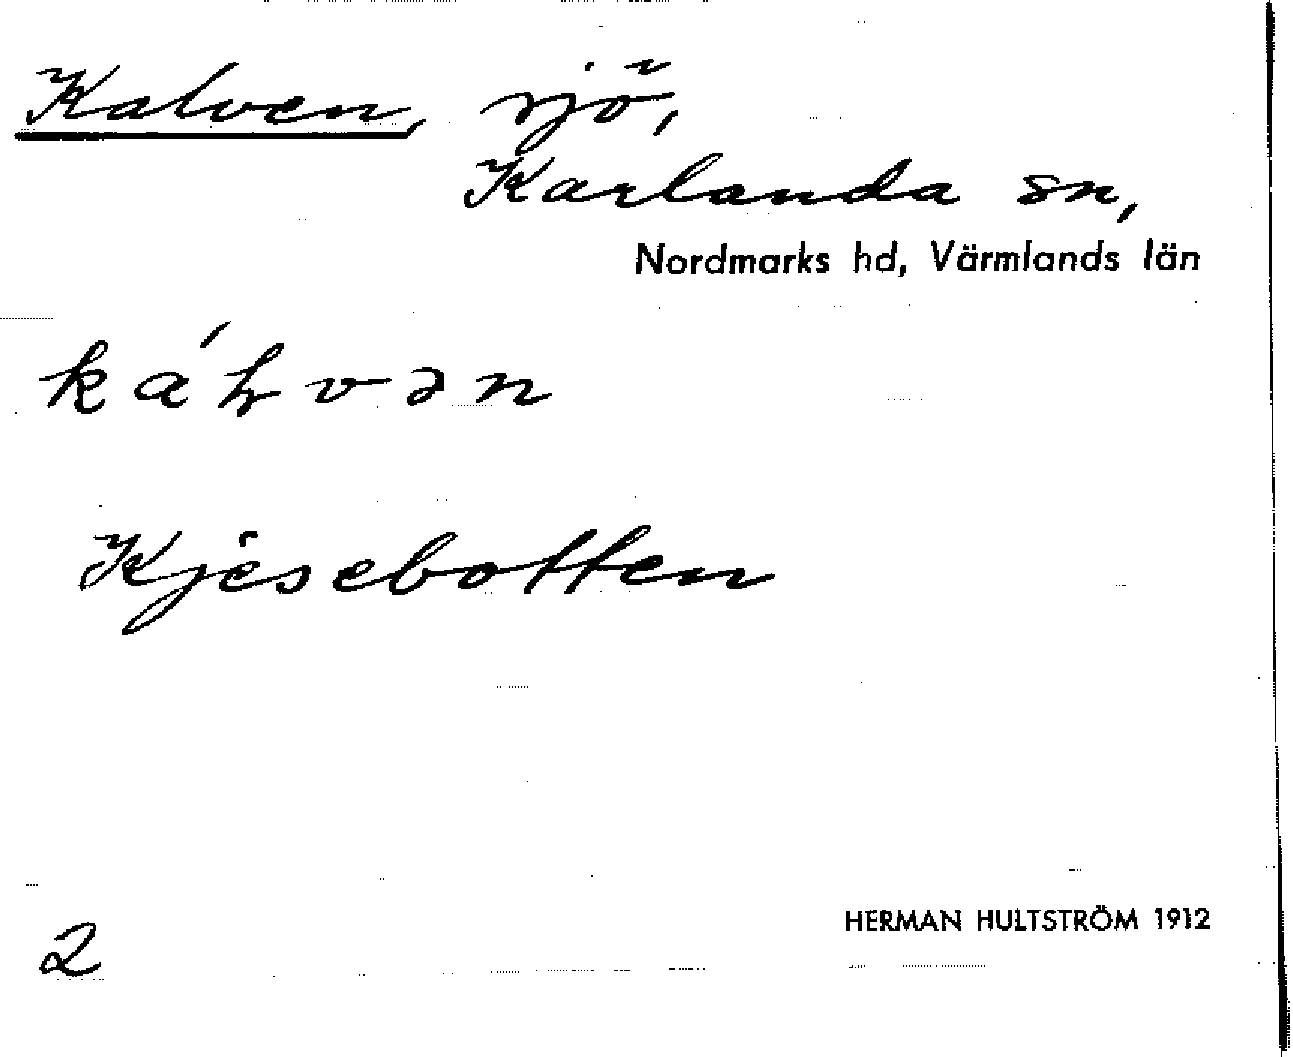 Kalven, sjö,
Karlanda sn,
Nordmarks hd, Värmlands län
Kjesebotten
2
HERMAN HULTSTRÖM 1912